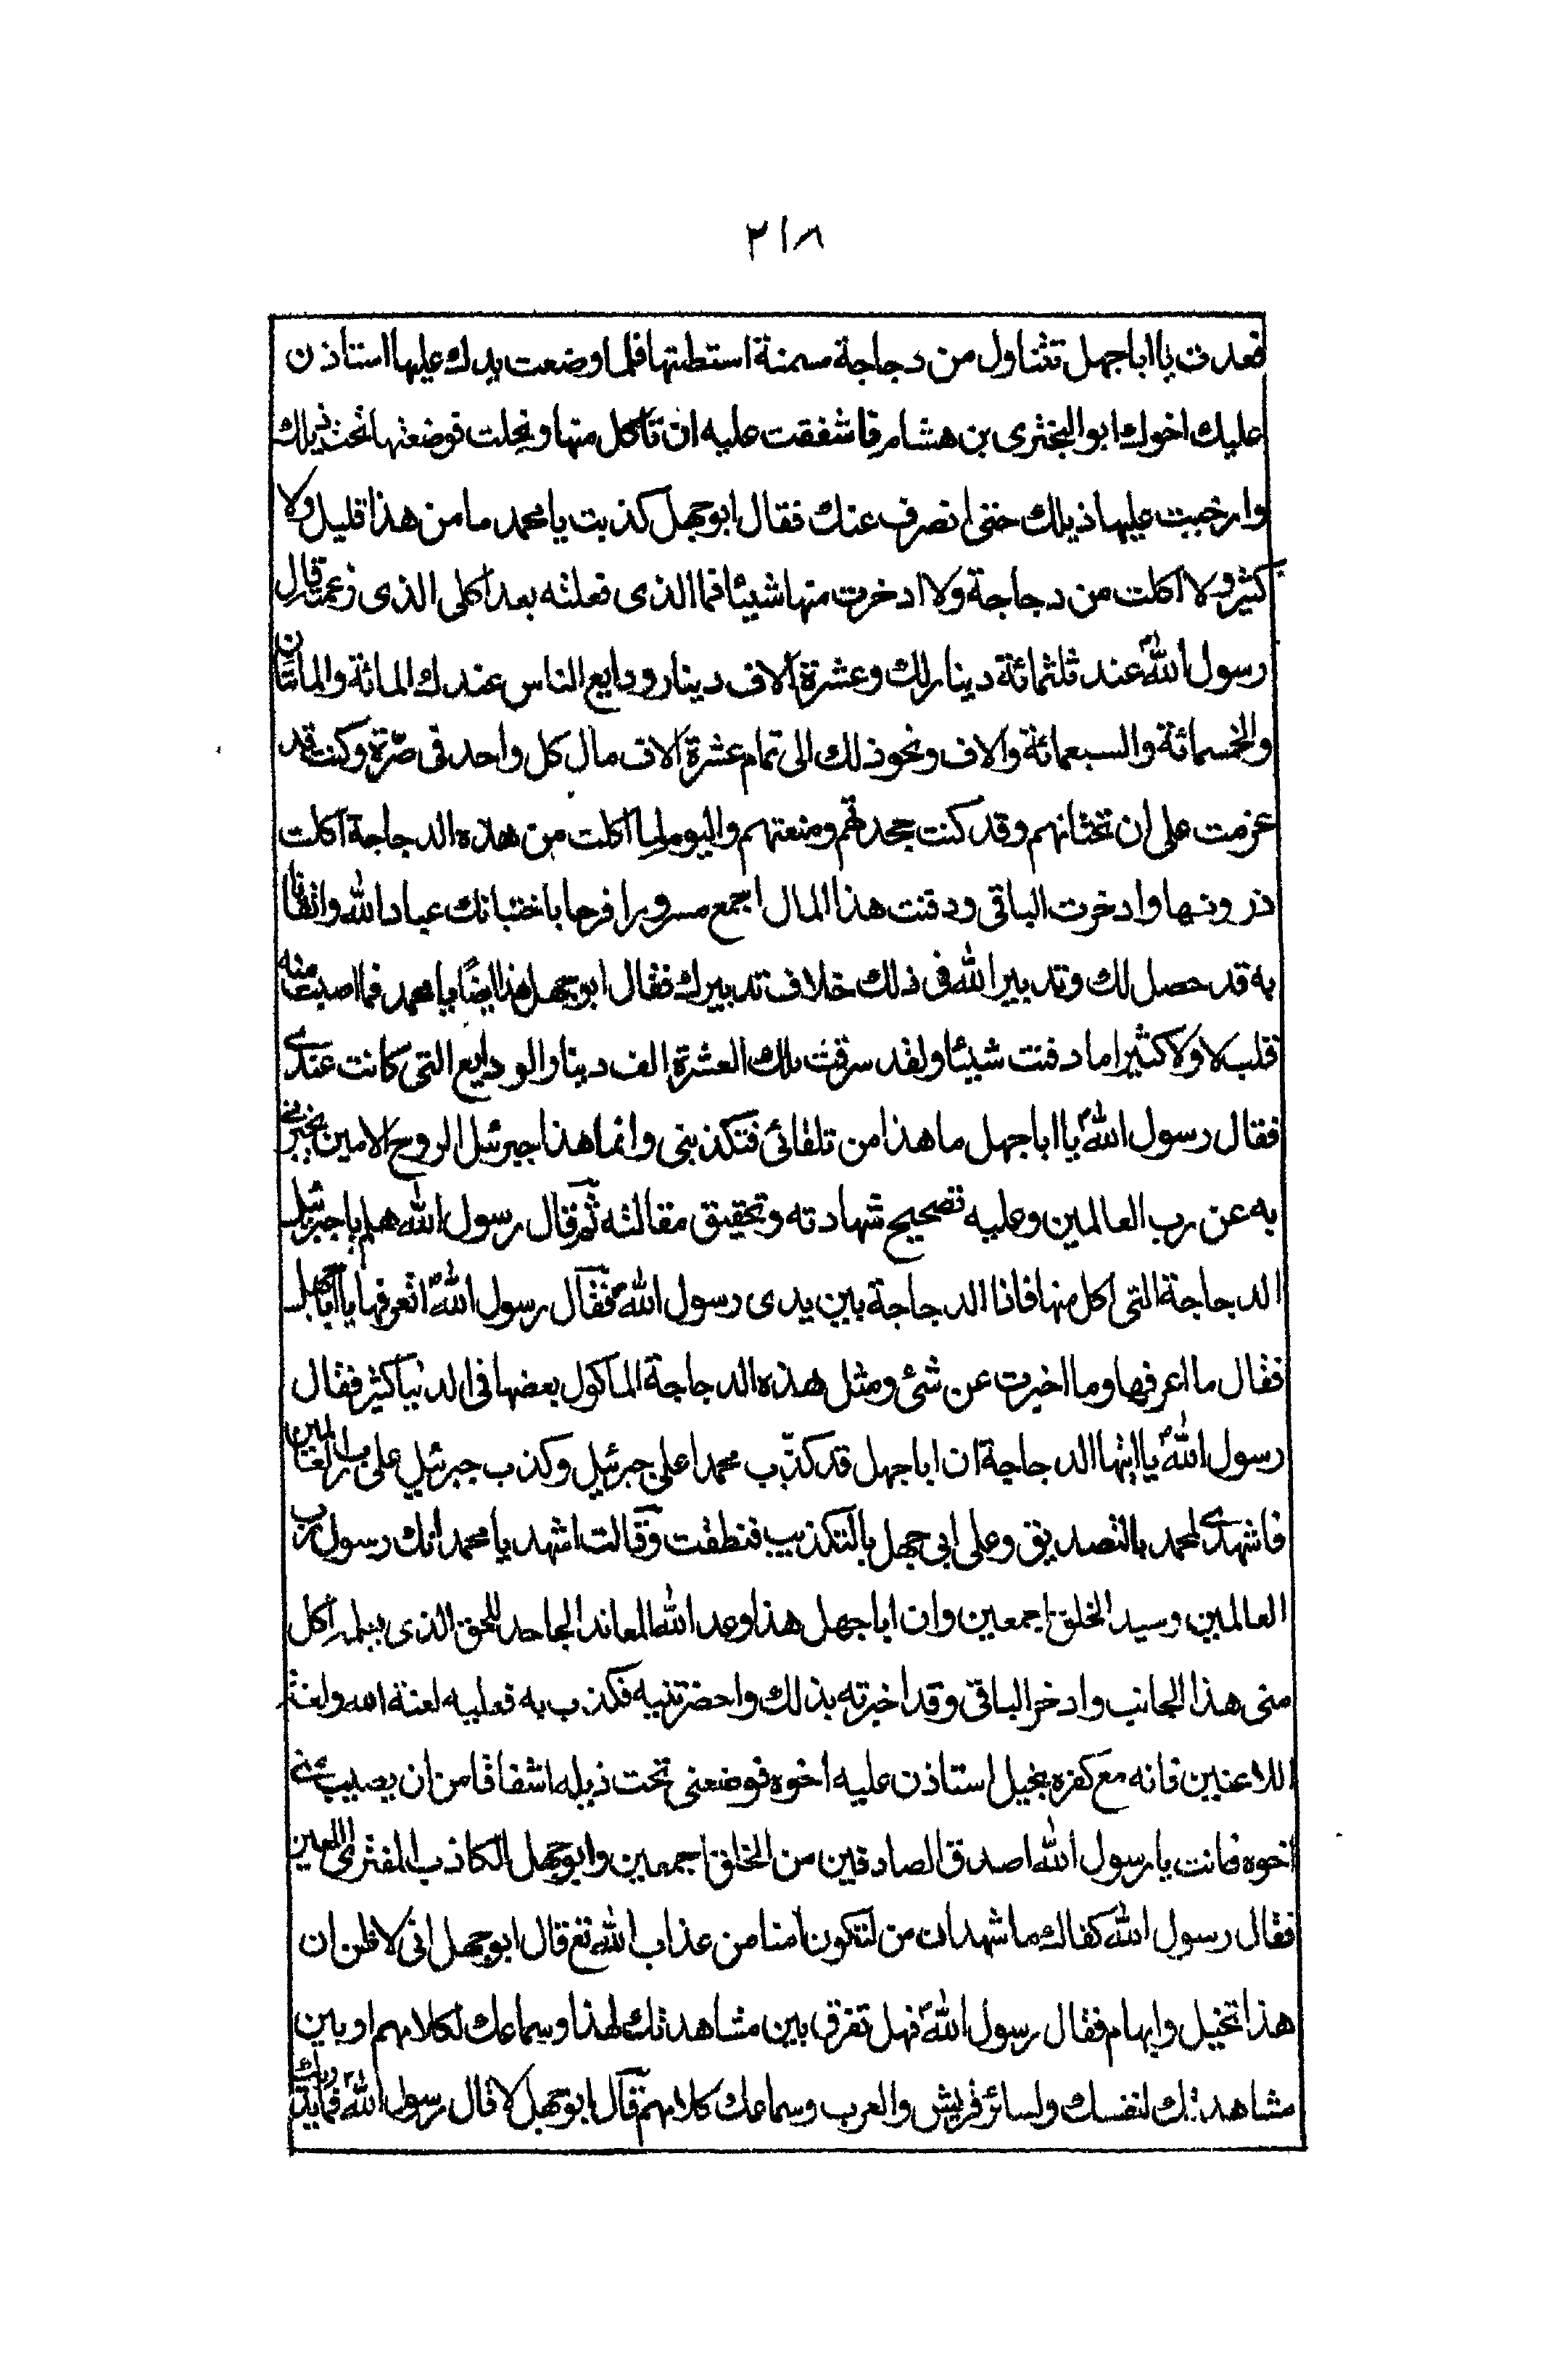 ٢١٨
فعدت يا ابا جهل تتناول من دجاجة مسمنة استطبتها فلما وضعت يدك عليها استاذن
عليك اخوك ابو البختري بن هشام فاشفقت عليه ان تأكل منها وبخلت فوضعتها تحت ذيلك
وارخيت عليها ذيلك حتى انصرف عنك فقال ابو جهل كذبت يا محمد ما من هذا قليل ولا
كثير ولا اكلت من دجاجة ولا ادخرت منها شيئا فما الذى فعلته بعد اكلى الذى زعمته قال
رسول الله عند ثلثمائة دينار لك وعشرة الاف دينار ودايع الناس عندك المائة والمائتان
والخمسمائة والسبعمائة والاف ونحو ذلك الى تمام عشرة الاف مال كل واحد فى صرّة وكنت قد
عزمت على ان تختانهم وقد كنت جحدتهم ومنعتهم واليوم لما اكلت من هذه الدجاجة اكلت
زورها وادخرت الباقى ودفنت هذا المال اجمع مسرورا فرحا باختيانك عباد الله واثقا
به قد حصل لك وتدبير الله فى ذلك خلاف تدبيرك فقال ابو جهل هذا ايضًا يا محمد فما اصبت منه
قليلا ولا كثيرا ما دفنت شيئا ولقد سرقت تلك العشرة الف دينار الودايع التى كانت عندى
فقال رسول الله يا ابا جهل ما هذا من تلقائى فتكذبنى وانما هذا جبرئيل الروح الامين يخبرنى
به عن رب العالمين وعليه تصحيح شهادته وتحقيق مقالته ثم قال رسول الله هلم يا جبرئيل
الدجاجة التى اكل منها فاذا الدجاجة بين يدى رسول الله فقال رسول الله اتعرفها يا ابا جهل
فقال ما اعرفها وما اخبرت عن شئ ومثل هذه الدجاجة المأكول بعضها فى الدنيا كثير فقال
رسول الله يا ايتها الدجاجة ان ابا جهل قد كذّب محمدا على جبرئيل وكذب جبرئيل على رب العالمين
فاشهدى لمحمد بالتصديق وعلى ابى جهل بالتكذيب فنطقت وقالت اشهد يا محمد انك رسول رب
العالمين وسيد الخلق اجمعين وان ابا جهل هذا وعد الله المعاند الجاحد للحق الذى يعلمه اكل
منى هذا الجانب وادخر الباقى وقد اخبرته بذلك واحضرتنيه فكذب به فعليه لعنة الله ولعنة
اللاعنين فانه مع كفره بخيل استاذن عليه اخوه فوضعنى تحت ذيله اشفاقا من ان يصيب منى
اخوه فانت يا رسول الله اصدق الصادقين من الخلق اجمعين وابو جهل الكاذب المفترى اللعين
فقال رسول الله كفاك ما شهدت من لتكون امنا من عذاب الله تع قال ابو جهل انى لاظن ان
هذا تخييل وايهام فقال رسول الله فهل تفرق بين مشاهدتك لهذا وسماعك لكلامهم او بين
مشاهدتك لنفسك ولسائر قريش والعرب وسماعك كلامهم قال ابو جهل لا قال رسول الله فما يدريك